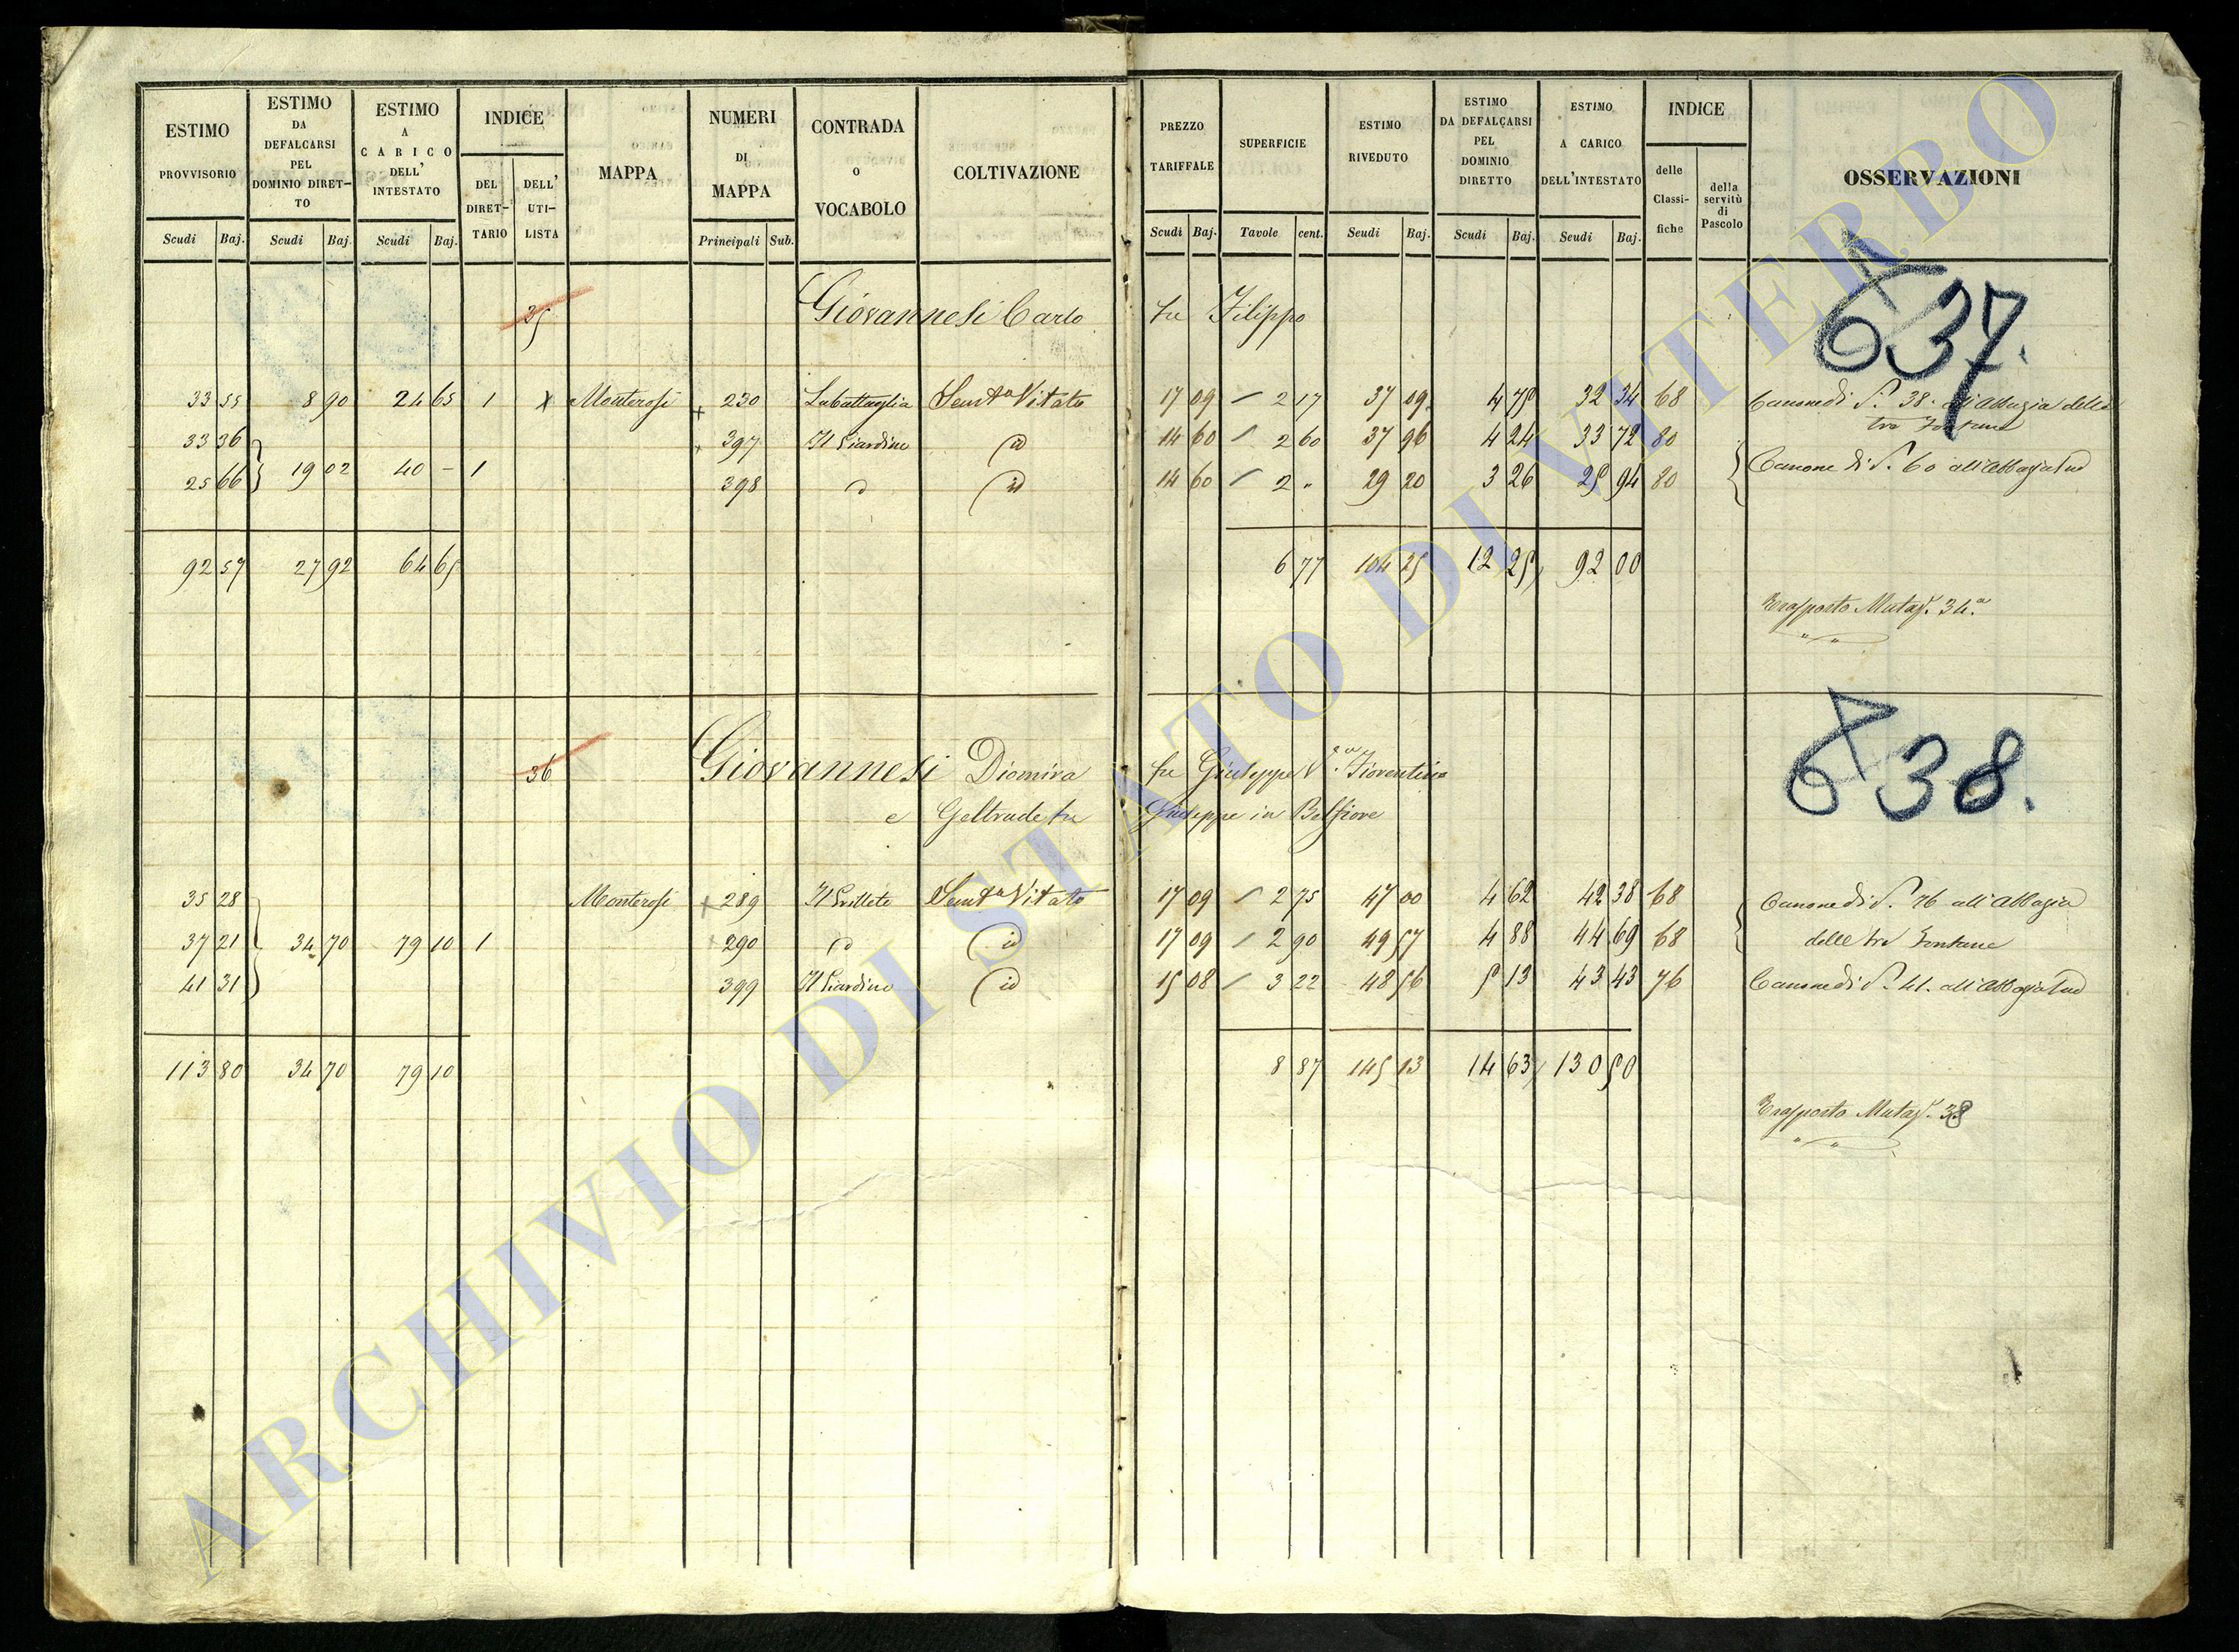 ESTIMO PROVVISORIO
ESTIMO DA DEFALCARSI PEL DOMINIO DIRET-TO
ESTIMO A CARICO DELL' INTESTATO
INDICE
DEL DIRET-TARIO
DELL' UTI-LISTA
MAPPA
NUMERI DI MAPPA
CONTRADA O VOCABOLO
COLTIVAZIONE
PREZZO TARIFFALE
SUPERFICIE
ESTIMO RIVEDUTO
ESTIMO DA DEFALCARSI PEL DOMINIO DIRETTO
ESTIMO A CARICO DELL'INTESTATO
INDICE
delle Classi-fiche
della servitù di Pascolo
OSSERVAZIONI
Scudi Baj. Scudi Baj. Scudi Baj. Principali Sub. Scudi Baj. Tavole cent. Scudi Baj. Scudi Baj. Scudi Baj.
637.
35 Giovannesi Carlo fu Filippo
33 55 8 90 24 65 1 x Monterosi + 230 Sem Vitato 17 09 2 17 37 09 4 75 32 34 68 Canone di S. 38. all'Abbazia delle
tre Fontane
33 36 + 397 Il Giardino id 14 60 2 60 37 96 4 24 33 72 80
19 02 40 - 1 Canone di S. 60 all'Abbazia
25 66 398 id 14 60 2 " 29 20 3 26 25 94 80
92 57 27 92 64 65 6 77 104 25 12 25 92 00
Trasporto Mutaz. 34.a
638.
36 Giovannesi Diomira fu Giuseppe Va. Fiorentino
e Geltrude fu Giuseppe in Belfiore
35 28 Monterosi + 289 Il Grilleto Sem Vitato 17 09 2 75 47 00 4 62 42 38 68 Canone di S. 76 all'Abbazia
37 21 34 70 79 10 1 290 id 17 09 2 90 49 57 4 88 44 69 68 delle tre Fontane
41 31 399 Il Giardino id 15 08 3 22 48 56 5 13 43 43 76 Canone di S. 41. all'Abbazia
113 80 34 70 79 10 8 87 145 13 14 63 130 50
Trasporto Mutaz. 38
ARCHIVIO DI STATO DI VITERBO